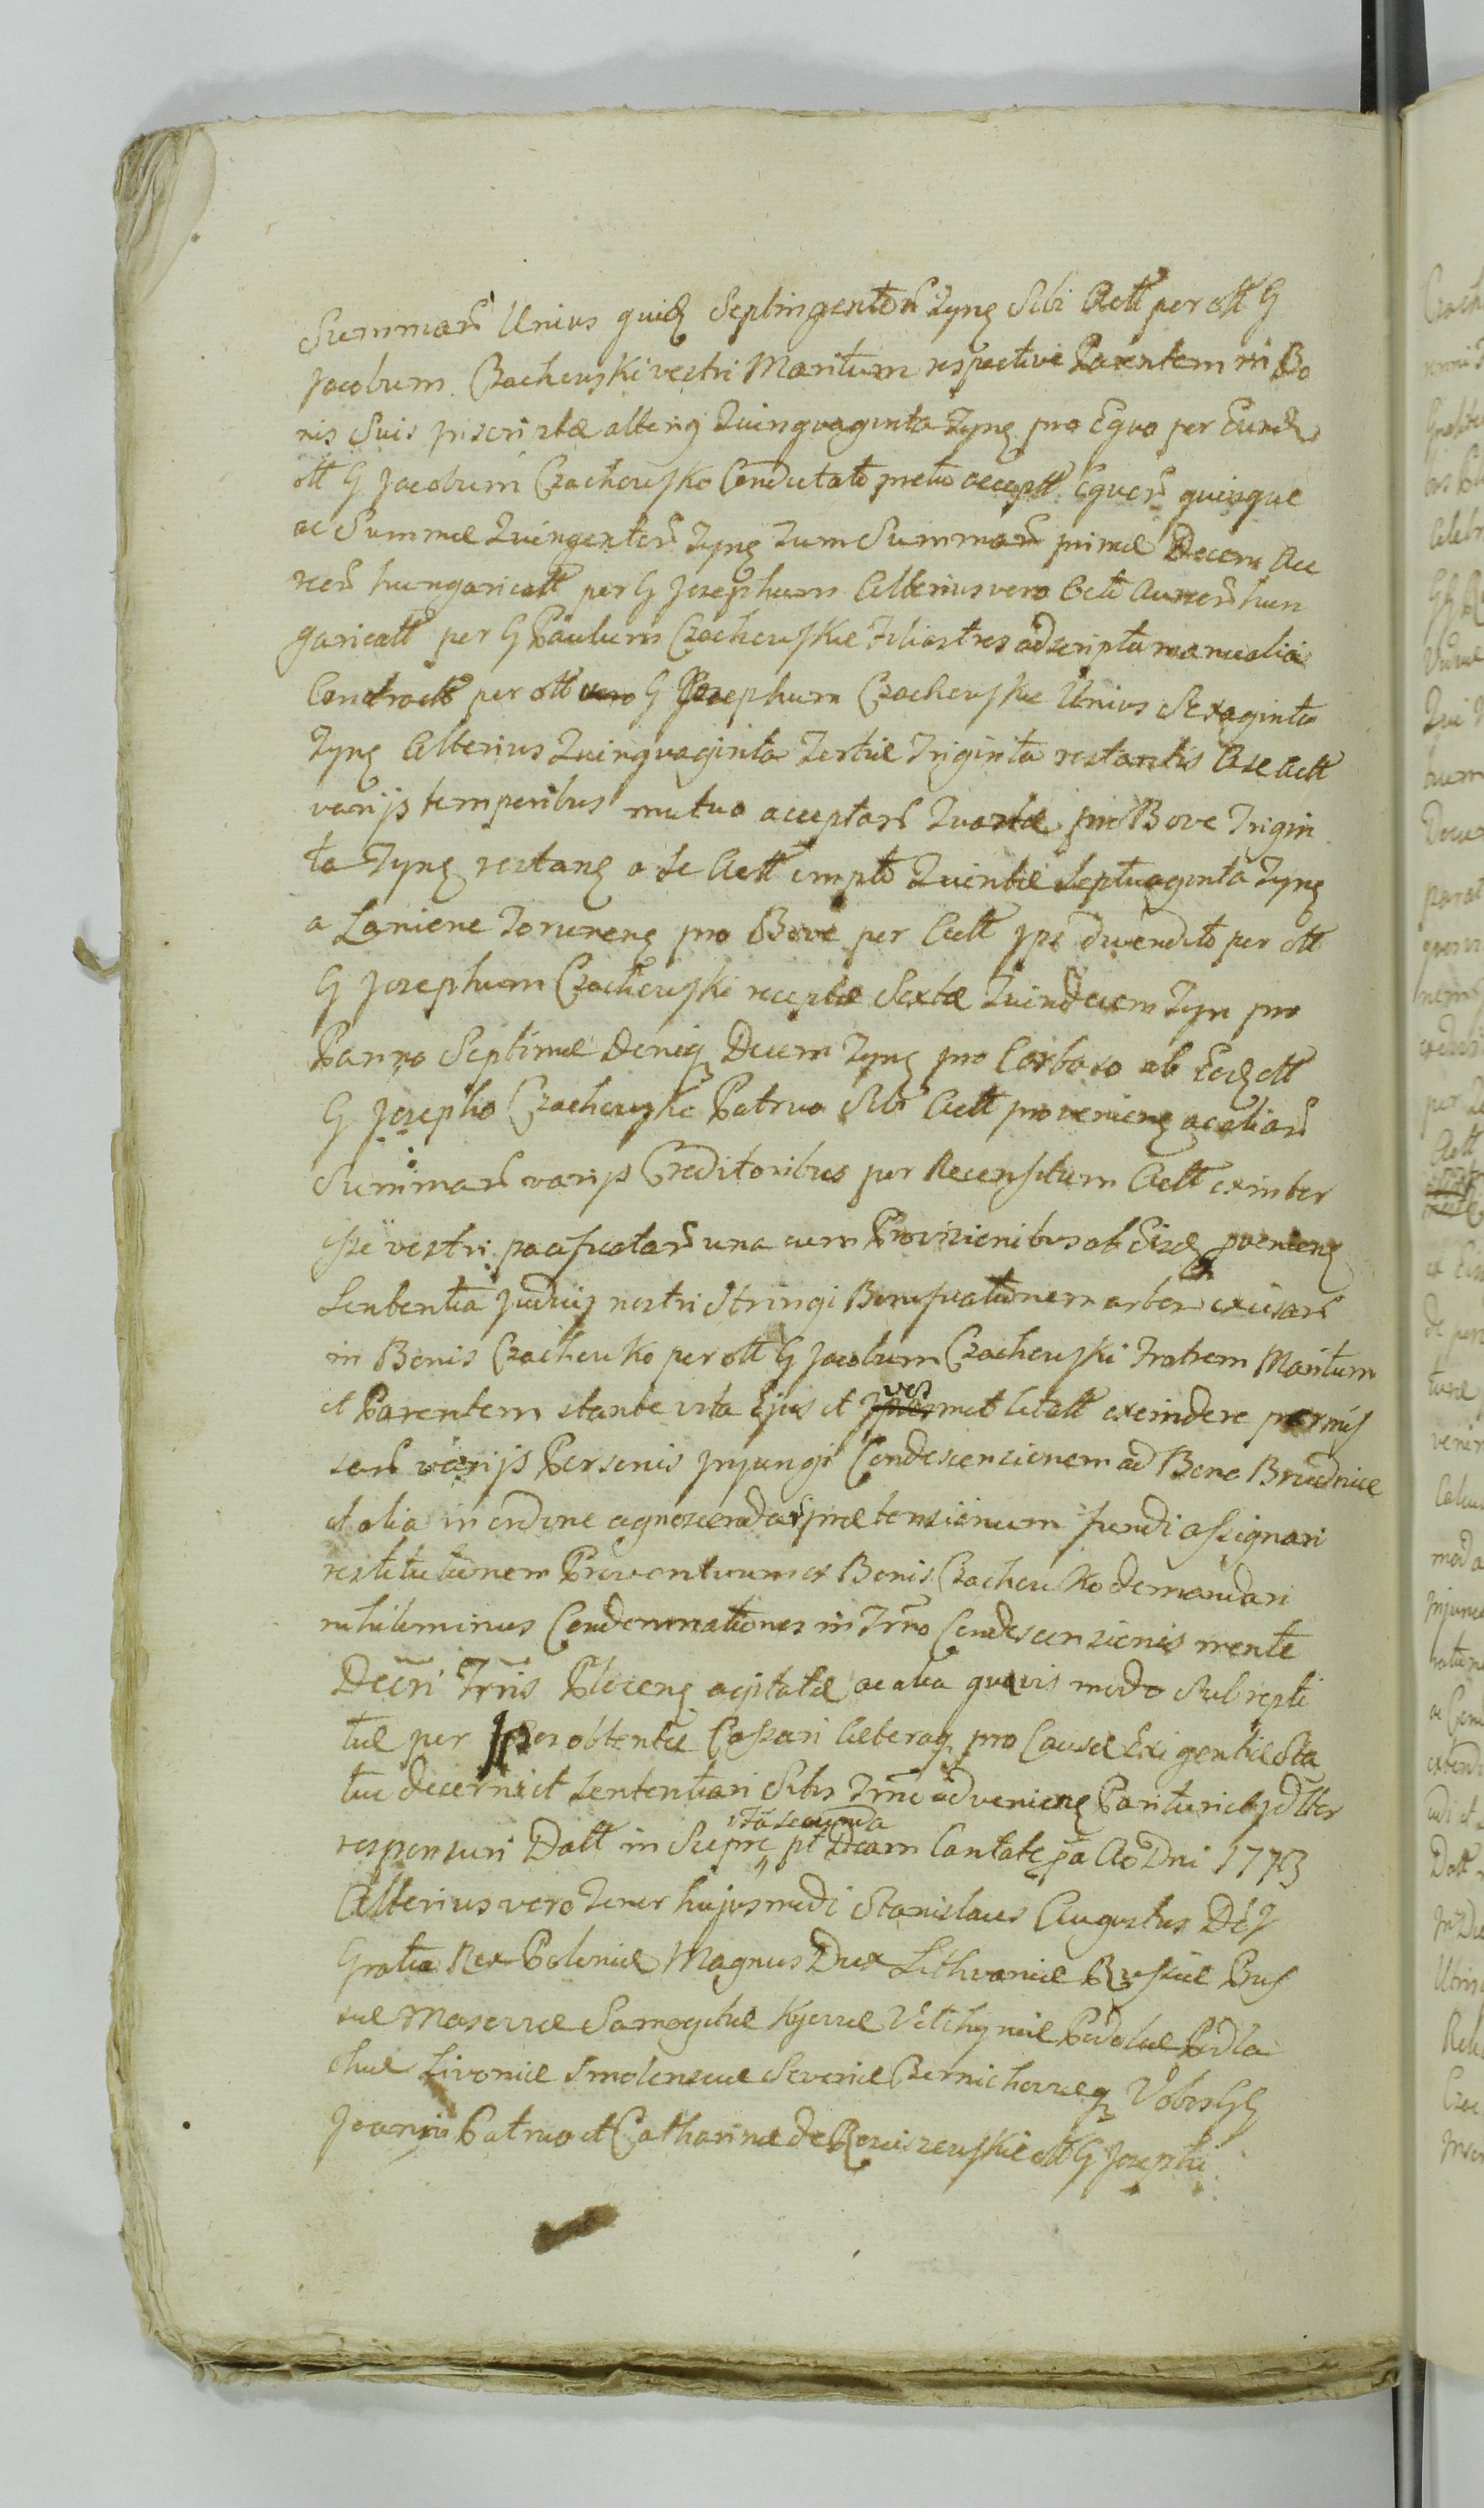 Summarũ Unius quidꝫ Septingentorũ Tynꝫ Sibi Actt per ott G
Jacobum Czachowski vestri Maritum respective Parentem in Bo
nis Suis inscriptæ alteriq Quinquaginta Tynꝫ pro Equo per Eundꝫ
ott G Jacobum Czachowsko Conductato pretio accept Equor̃ quinque
ac Summæ Quingentor̃ Tynꝫ Tum Summarũ primæ Decem Au
reor̃ hungaricatt per G Josephum Alterius vero Octo Aureor̃ hun
garicatt per G Paulum Czachowskie Filiastres ad scripta manualia
Contractt per ott G Josephum Czachowskie Unius Sexaginta
Tynꝫ Alterius Quinquaginta Tertiæ Triginta restantis A se Actt
varijs temporibus mutuo acceptarũ Quartæ pro Bove Trigin
ta Tynꝫ restanꝫ a se Actt empto Quintæ Septuaginta Tynꝫ
a Laniene Torunenꝫ pro Bove per Actt ipsi divendito per ott
G Josephum Czachowski receptæ Sextæ Quindecem Tyn pro
Panno Septimæ deniqꝫ Decem Tynꝫ pro Carbaso ab Eodꝫ ott
G Josepho Czachowski Patruo Sibi Actt provenienꝫ ac aliarũ
Summarũ varijs Creditoribus per Recensitum Actt ex inter
esse vestri pacificatarũ una cum Provisionibus ab Eisdꝫ provenienꝫ
Sententia Judicij nostri Stringi Bonificationem arbor̃ excisarũ
in Bonis Czachowko per ott G Jacobum Czachowski Fratrem Maritum
et Parentem stante vita Ejus et vosmet Citatt exeindere permis
sarũ varijs Personis Injungi Condescensionem ad Bona Brudnice
et alia in ordine agnoscendar̃ prætensionum fundi assignari
restitutionem Proventuum ex Bonis Czachowko demandari
nihilominus Condemnationes in Trno Condescensionis mente
Decri Trnis Plocenꝫ agitatæ ac alia quævis modo Subrepti
tiæ per Ipsos obtentæ Cassari Cæteraqꝫ pro Causæ Exigentiæ Sta
tui decerni et Sententiari Sitis Trno advenienꝫ Parituri et Jdꝫter
responsuri Datt in Sieprc fria secunda pt Dcam Cantate pa Ao Dni 1773
Alterius vero Tenor hujusmodi Stanislaus Augustus DEJ
Gratia Rex Poloniæ Magnus Dux Lithvaniæ Russiæ Prus
siæ Masoviæ Samogitiæ Kijoviæ Volhyniæ Podoliæ Podla
chiæ Livoniæ Smolensciæ Severiæ Czernichoviæqꝫ Vobis GG
Joanni Patruo et Catharinæ de ott G Josephi